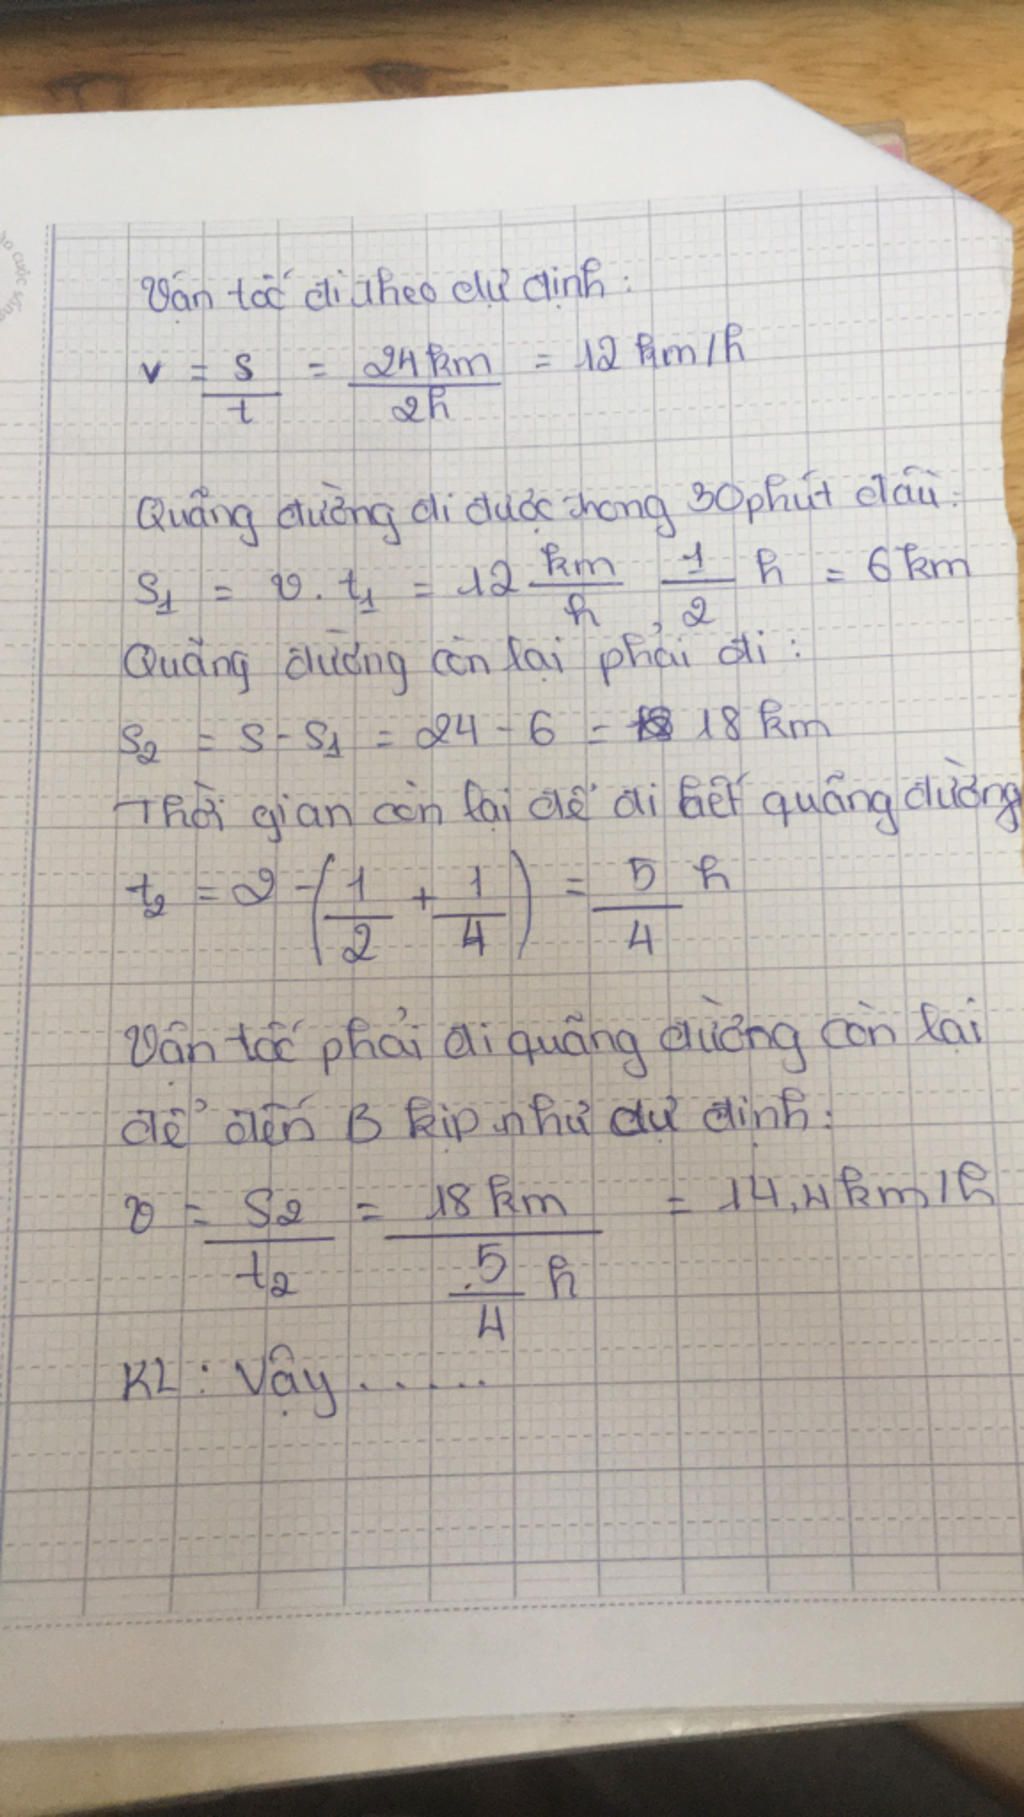 Vận tốc đi theo dự định:
v = s/t = 24km/2h = 12 km/h
Quãng đường đi được trong 30 phút đầu:
S1 = v. t1 = 12 km/h . 1/2 h = 6 km
Quãng đường còn lại phải đi:
S2 = S - S1 = 24 - 6 = 18 km
Thời gian còn lại để đi hết quãng đường
t2 = 2 - (1/2 + 1/4) = 5/4 h
Vận tốc phải đi quãng đường còn lại
để đến B kịp như dự định:
v = S2/t2 = 18 km / 5/4 h = 14,4 km/h
KL: Vậy .....